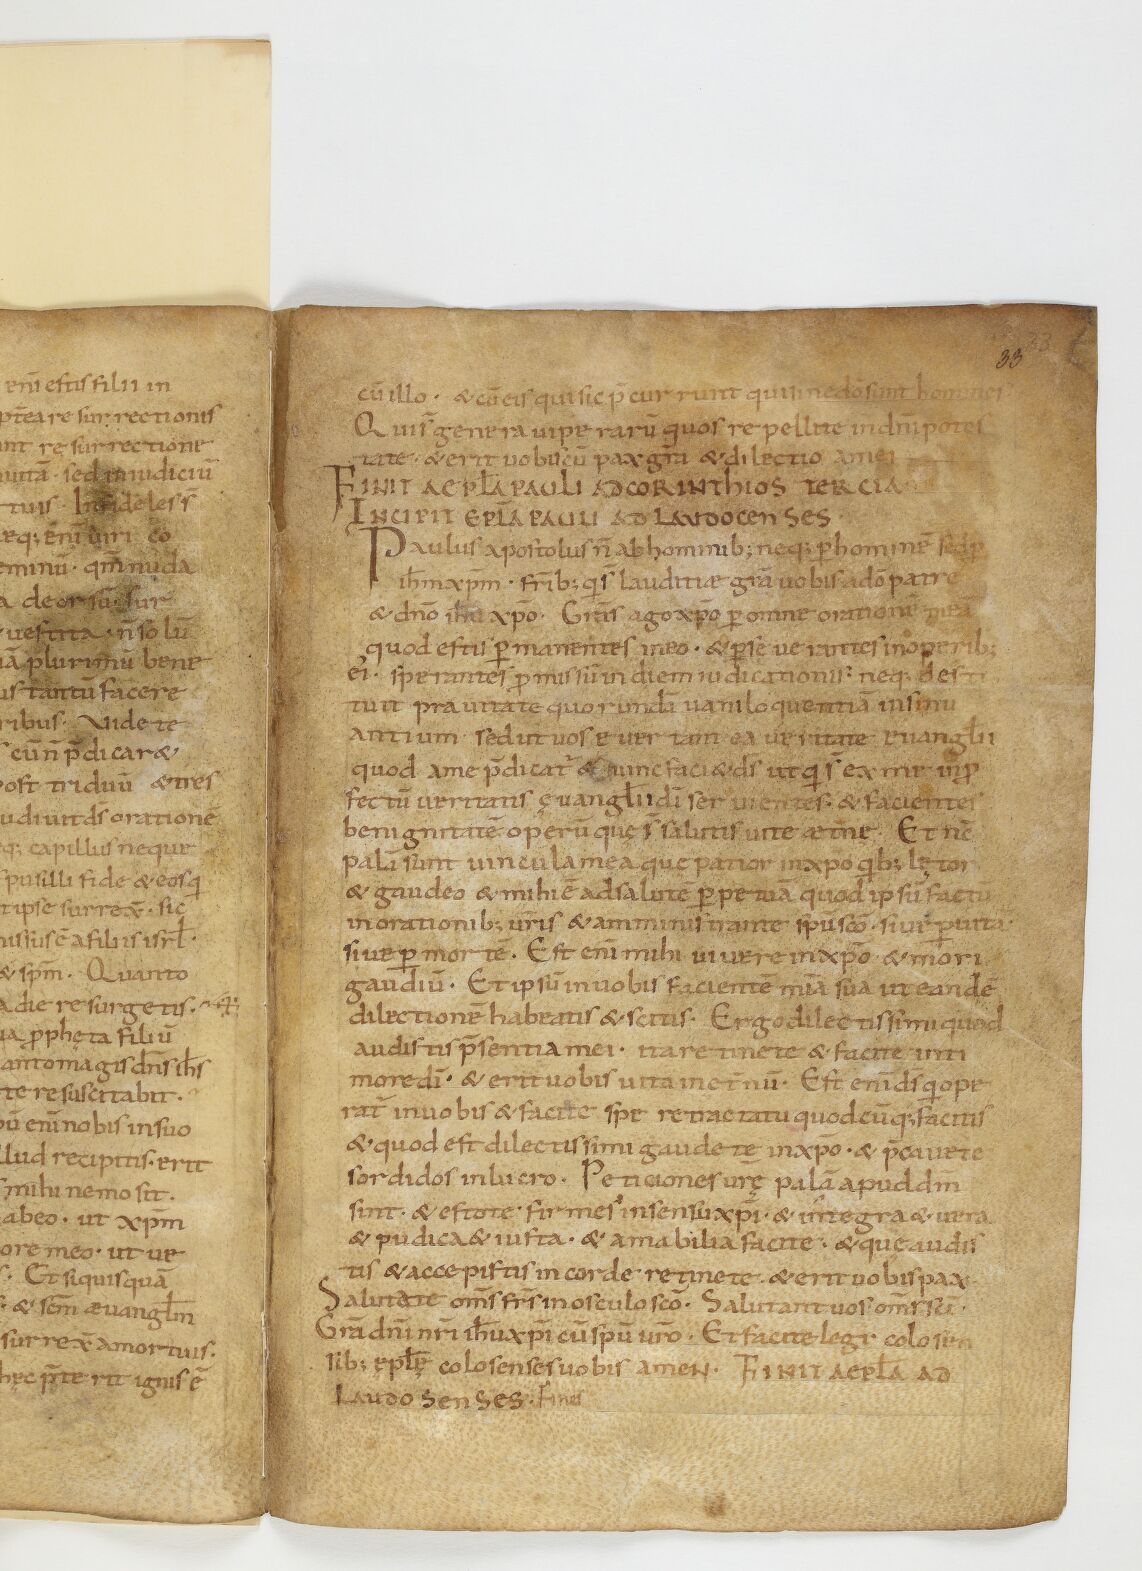 enī estis filii in
ptea resurrectionis
unt resurrectione
uitā · sed in iudiciū
tuis · Infideles s
eq; enī uiri co
eminū · qm̄ nuda
a deorsū · sur
uestita · n̄ solū
iā plurimū bene
us tantū facere
ribus · Uidete
cū n̄ p̄dicar&
ost triduū &tres
udiuit ds̄ orationē
eq; capillus neque
pusilli fide & eosq
t ipse surrex̄ · sic
missus ē a filiis isrl̄ ·
& spm̄ · Quanto
a die resurgetis ·
ua ꝓphęta filiū
anto magis dn̄s ih̄s
te resuscitabit ·
ū enī nobis in suo
llud recipitis · erit
mihi nemo sit ·
abeo · ut xp̄m
ore meo · ut ue
Et si quis quā
& sc̄m æuangl̄m
surrex̄ a mortuis ·
hęc p̄terit ignis ē
33
cū illo · & cū eis qui sic p̄currunt qui sine dō sunt homines
Qui s̄ genera uiperarū quos repellite in dn̄i potes
tate · & erit uobiscū pax gr̄a & dilectio amen
FINIT AEPLA PAULI AD CORINTHIOS TERCIA
INCIPIT EPLA PAULI AD LAUDOCENSES ·
Paulus apostolus n̄ ab hominib; neq; p̱ hominē sed p̱
ih̄m xp̄m · fr̄ib; q̄ s̄ lauditiæ gr̄a uobis a dō patre
& dn̄o ihū xp̄o · Gr̄as ago xp̄o p̱ omne orationē meā
quod estis p̱manentes in eo · & p̱seuerantes in operib;
ei · sperantes ꝓmissū in diem iudicationis · neq; desti
tuit prauitate quorundā uaniloquentiā insinu
antium · sed ut uos euertant a ueritate euanglii
quod a me p̄dicat̄ & nunc faci& ds̄ ut q̄ s̄ ex me in ꝓ
fectū ueritatis ęuanglii dī seruientes · & facientes
benignitatē operū quę s̄ salutis uite æt̄ne · Et nc̄
palā sunt uincula mea que patior in xp̄o qb; lętor
& gaudeo & mihi ē ad salutē p̱petuā quod ipsū factū
in orationib; ur̄is & amministrante sp̄u sc̄o · siue p̱ uitā
siue p̱ mortē · Est enī mihi uiuere in xp̄o & mori
gaudiū · Et ipsū in uobis facientē miā suā ut eandē
dilectionē habeatis & scitis · Ergo dilectissimi quod
audistis p̄sentia mei · ita retinete & facite in ti
more dī · & erit uobis uita in et̄nū · Est enī ds̄ q̄ ope
rat̄ in uobis & facite spe retractatu quodcūq; facitis
& quod est dilectissimi gaudete in xp̄o · & p̄cauete
sordidos in lucro · Peticiones ur̄ę palā apud dm̄
sint · & estote firmes in sensu xp̄i · & integra & uera
& pudica & iusta · & amabilia facite · & que audis
tis & accepistis in corde retinete & erit uobis pax
Salutate om̄s fr̄s in osculo sc̄o · Salutant uos om̄s sc̄i ·
Gr̄a dn̄i nr̄i ih̄u xp̄i cū sp̄u ur̄o · Et facite legi colosen
sib; ępl̄ę colosenses uobis amen · FINIT AEPLA AD
LAUDOSENSES · Fines